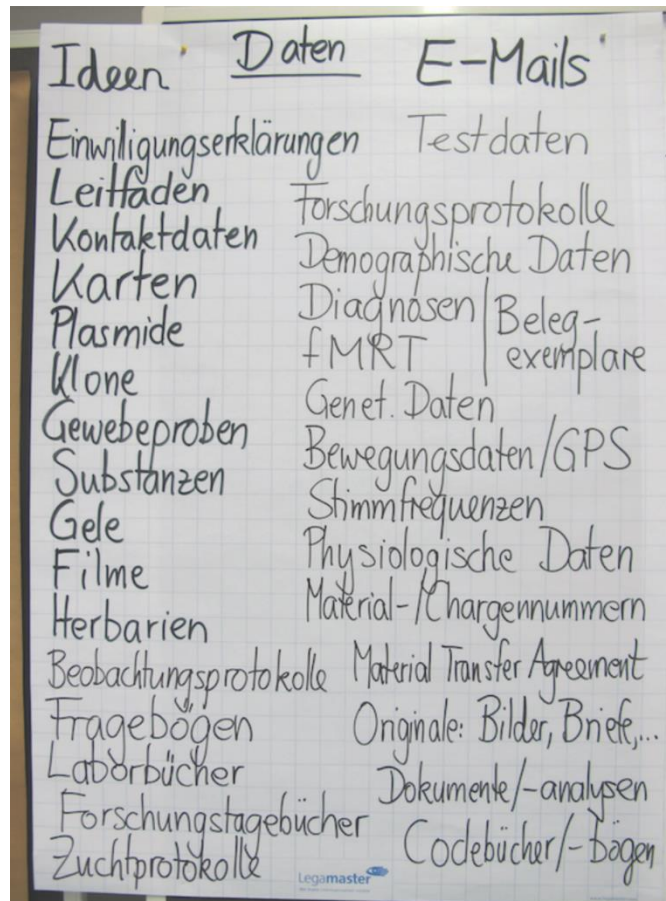 Ideen Daten E-Mails
Einwiligungserklärungen Testdaten
Leitfäden
Kontaktdaten
Karten
Plasmide
Klone
Gewebeproben
Substanzen
Gele
Filme
Herbarien
Beobachtungsprotokolle
Fragebögen
Laborbücher
Forschungstagebücher
Zuchtprotokolle
Forschungsprotokolle
Demographische Daten
Diagnosen
fMRT
Beleg-
exemplare
Genet. Daten
Bewegungsdaten/GPS
Stimmfrequenzen
Physiologische Daten
Material-/Chargennummern
Material Transfer Agreement
Originale: Bilder, Briefe,...
Dokumente/-analysen
Codebücher/-bögen
Legamaster